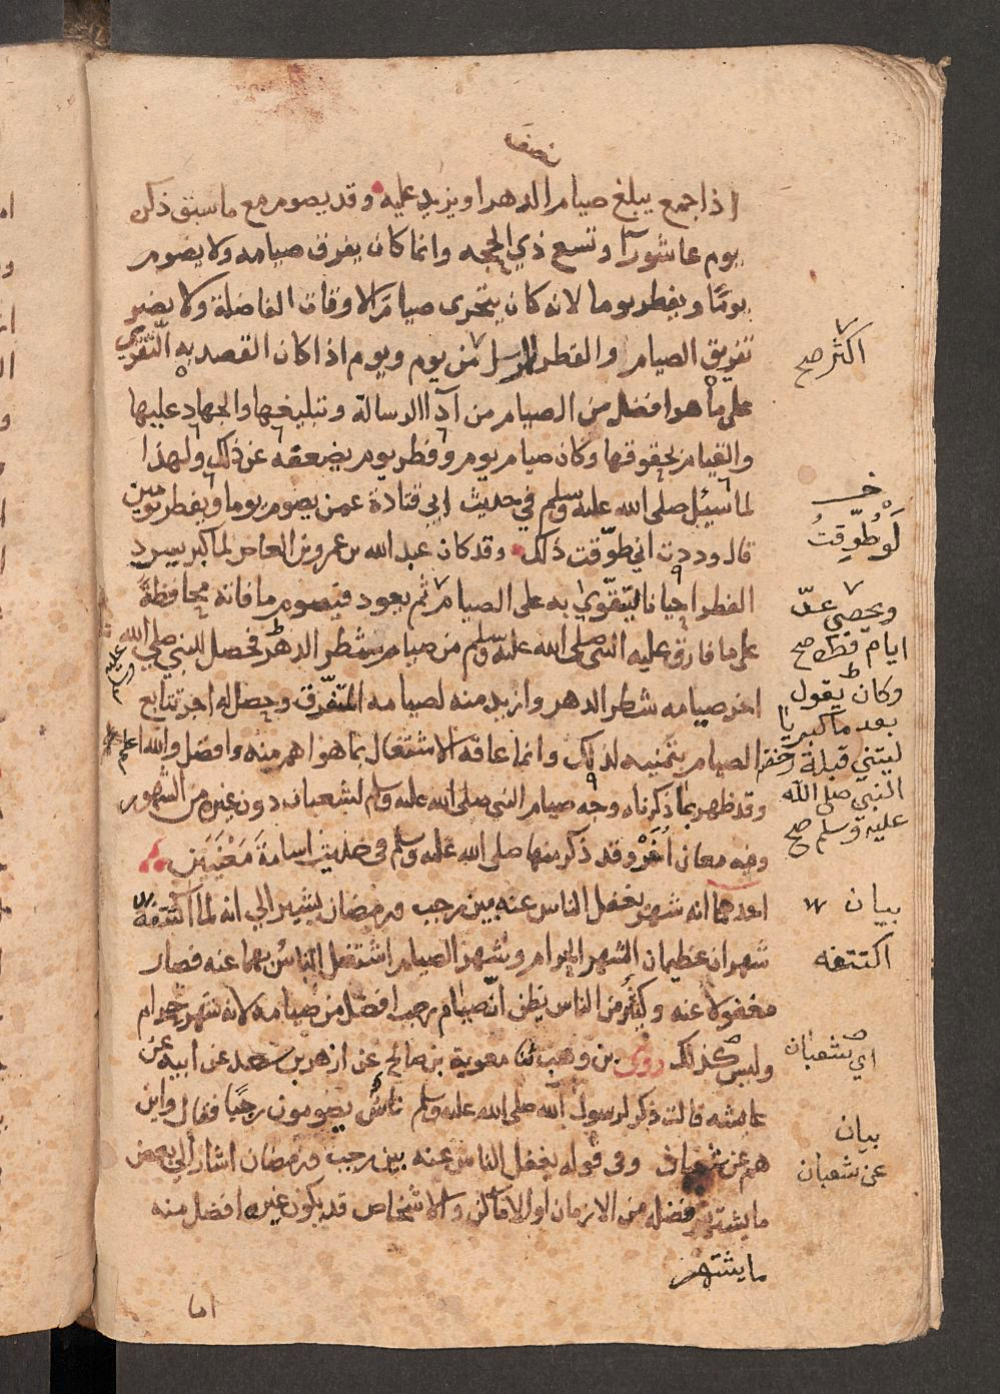 اذا جمع يبلغ صيام الدهر او يزيد عليه وقد يصوم مع ما سبق ذكره
يوم عاشورآ وتسع ذي الحجه وانما كان يفرق صيامه ولا يصوم
يومًا ويفطر يوما لانه كان يتحرى صيام الاوقات الفاضلة ولا يضر
تفريق الصيام والفطر من يوم ويوم اذا كان القصد به التقوي
على ما هو افضل من الصيام من آدا الرسالة وتبليغها والجهاد عليها
والقيام بحقوقها وكان صيام يوم وفطر يوم يضعفه عن ذلك ولهذا
لما سيئل صلى الله عليه وسلم في حديث ابي قتادة عمن يصوم يوما ويفطر يومين
قال وددت اني طوّقت ذلك وقد كان عبد الله بن عمرو بن العاص لما كبر يسرد
الفطر احيانا ليتقوى به على الصيام ثم يعود فيصوم ما فاته محافظة
على ما فارق عليه النبي صلى الله عليه وسلم من صيام شطر الدهر فحصل للنبي صلى الله
عليه وسلم
اجر صيامه شطر الدهر وازيد منه لصيامه المتفرق وحصل له اجر تتابع
الصيام بتمنيه لذلك وانما عاقه الاشتغال بما هو اهم منه وافضل والله اعلم
وقد ظهر بما ذكرناه وجه صيام النبي صلى الله عليه وسلم لشعبان دون غيره من الشهور
وفيه معان اُخَرْ وقد ذكر منها صلى الله عليه وسلم في حديث اسامة مَعْنَيَين
احدهما انه شهر يغفل الناس عنه بين رجب ورمضان يشير الي انه لما اكتنفه
شهران عظيمان الشهر الحرام وشهر الصيام اشتغل الناس بهما عنه فصار
مغفولا عنه وكثير من الناس يظن انّ صيام رجب افضل من صيامه لانه شهر حرام
وليس كذلك روى بن وهب ثنا معوية بن صالح عن ازهر بن سعد عن ابيه عن
عايشه قالت ذكر لرسول الله صلى الله عليه وسلم ناسٌ يصومون رجبًا فقال واين
هم عن شعبان وفي قوله يغفل الناس عنه بين رجب ورمضان اشار الي بعض
ما يشتهر فضله من الازمان او الاماكن والاشخاص قد يكون غيره افضل منه
ما يشتهر
اما
اكثر صح
لَوْ طُوِّقتُ
ويحصي عدّ
ايام فطره صح
وكان يقول
بعد ما كبر يا
ليتني قبلة رخصة
النبي صلى الله
عليه وسلم صح
بيان
اكتنفه
اي شعبان
بيان
عن شعبان